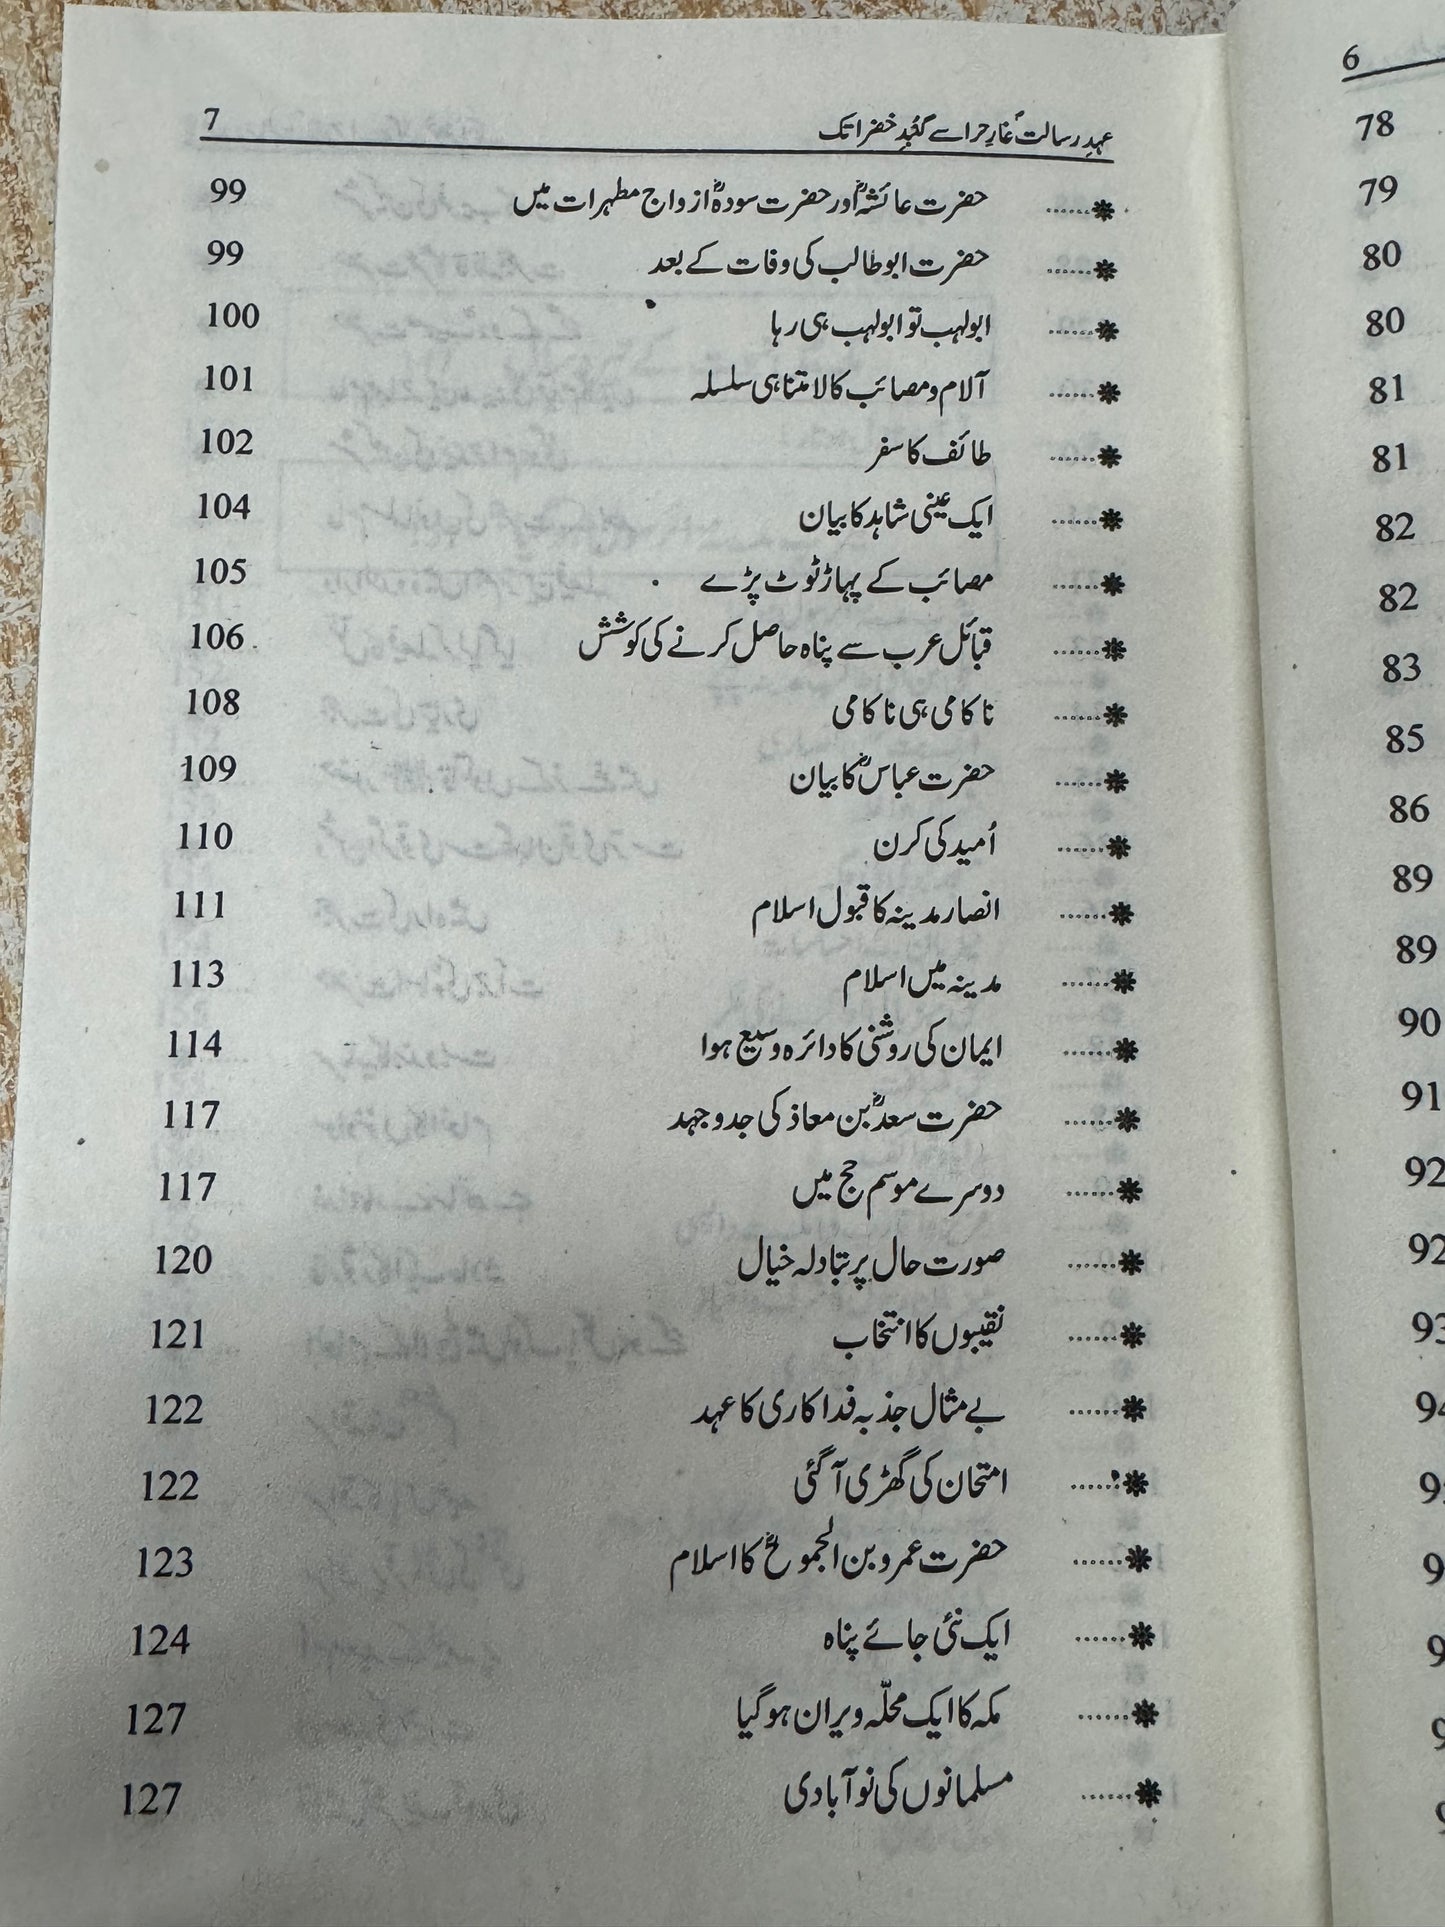 عہدِ رسالتؐ غارِ حرا سے گنبدِ خضرا تک 7
❋...... حضرت عائشہؓ اور حضرت سودہؓ ازواج مطہرات میں 99
❋...... حضرت ابو طالب کی وفات کے بعد 99
❋...... ابو لہب تو ابو لہب ہی رہا 100
❋...... آلام و مصائب کا لامتناہی سلسلہ 101
❋...... طائف کا سفر 102
❋...... ایک عینی شاہد کا بیان 104
❋...... مصائب کے پہاڑ ٹوٹ پڑے 105
❋...... قبائل عرب سے پناہ حاصل کرنے کی کوشش 106
❋...... ناکامی ہی ناکامی 108
❋...... حضرت عباسؓ کا بیان 109
❋...... اُمید کی کرن 110
❋...... انصار مدینہ کا قبول اسلام 111
❋...... مدینہ میں اسلام 113
❋...... ایمان کی روشنی کا دائرہ وسیع ہوا 114
❋...... حضرت سعدؓ بن معاذ کی جدوجہد 117
❋...... دوسرے موسم حج میں 117
❋...... صورت حال پر تبادلہ خیال 120
❋...... نقیبوں کا انتخاب 121
❋...... بے مثال جذبہ فداکاری کا عہد 122
❋...... امتحان کی گھڑی آ گئی 122
❋...... حضرت عمرو بن الجموحؓ کا اسلام 123
❋...... ایک نئی جائے پناہ 124
❋...... مکہ کا ایک محلّہ ویران ہو گیا 127
❋...... مسلمانوں کی نو آبادی 127
6
78
79
80
80
81
81
82
82
83
85
86
89
89
90
91
92
92